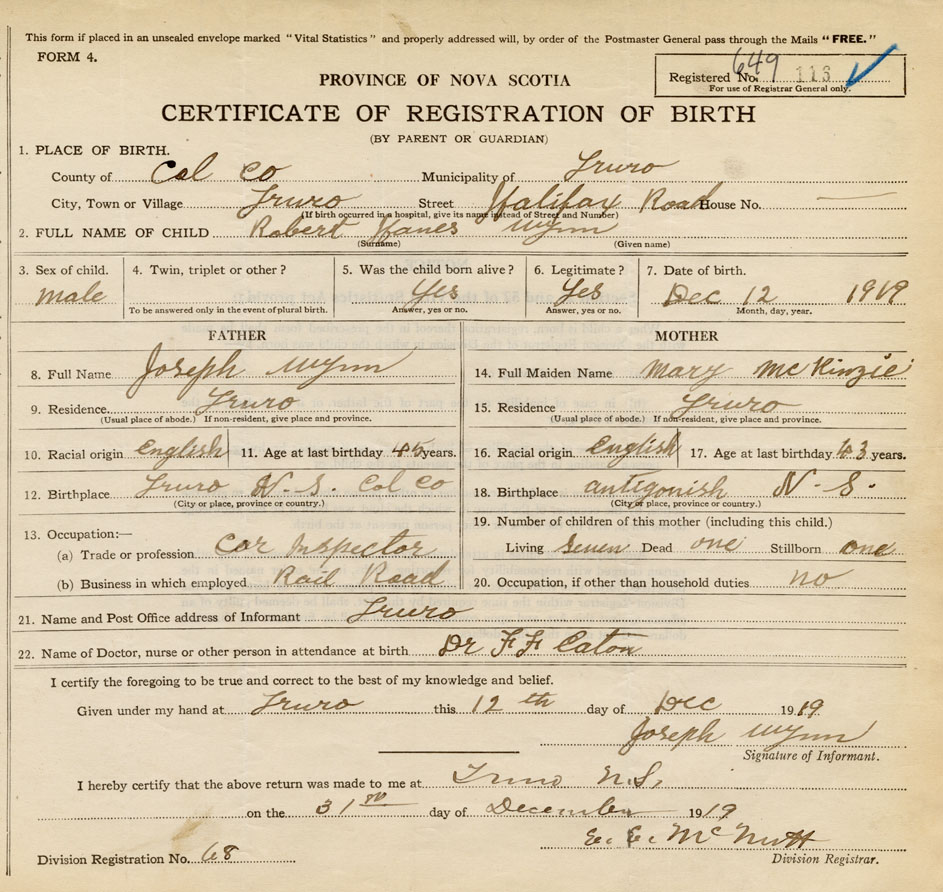 This form if placed in an unsealed envelope marked "Vital Statistics" and properly addressed will, by order of the Postmaster General pass through the Mails "FREE."
FORM 4.
Registered No. 649 116
For use of Registrar General only.
PROVINCE OF NOVA SCOTIA
CERTIFICATE OF REGISTRATION OF BIRTH
(BY PARENT OR GUARDIAN)
1. PLACE OF BIRTH.
County of Col Co Municipality of Truro
City, Town or Village Truro Street Halifax Road House No.
(If birth occurred in a hospital, give its name instead of Street and Number)
2. FULL NAME OF CHILD Robert Hanes Wynn
(Surname) (Given name)
3. Sex of child. 4. Twin, triplet or other? 5. Was the child born alive? 6. Legitimate? 7. Date of birth.
Male Yes Yes Dec 12 1919
To be answered only in the event of plural birth. Answer, yes or no. Answer, yes or no. Month, day, year.
FATHER MOTHER
8. Full Name Joseph Wynn 14. Full Maiden Name Mary McKinzie
9. Residence Truro 15. Residence Truro
(Usual place of abode.) If non-resident, give place and province. (Usual place of abode.) If non-resident, give place and province.
10. Racial origin English 11. Age at last birthday 45 years. 16. Racial origin English 17. Age at last birthday 43 years.
12. Birthplace Truro N.S. Col Co 18. Birthplace Antigonish N.S.
(City or place, province or country.) (City or place, province or country.)
13. Occupation:— 19. Number of children of this mother (including this child.)
(a) Trade or profession Car Inspector Living Seven Dead one Stillborn one
(b) Business in which employed Rail Road 20. Occupation, if other than household duties. no
21. Name and Post Office address of Informant Truro
22. Name of Doctor, nurse or other person in attendance at birth Dr F F Eaton
I certify the foregoing to be true and correct to the best of my knowledge and belief.
Given under my hand at Truro this 12 th day of Dec 1919
Joseph Wynn
Signature of Informant.
I hereby certify that the above return was made to me at Truro N.S.
on the 31st day of December 1919
E. E. McNutt
Division Registration No. 68 Division Registrar.